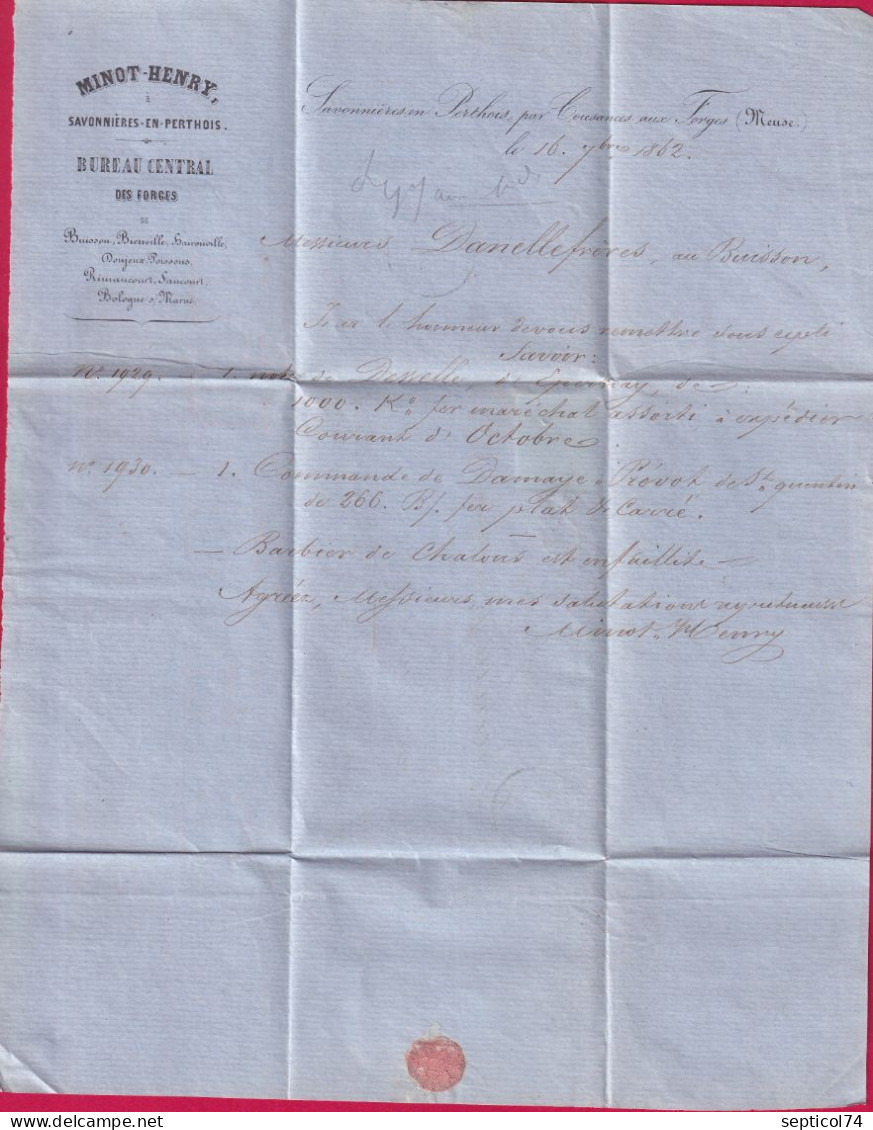 MINOT-HENRY,
à
SAVONNIÈRES-EN-PERTHOIS.
BUREAU CENTRAL
DES FORGES
DE
Buisson, Bienville, Haironville,
Donjeux, Poissons,
Rimaucourt, Saucourt,
Bologne s/ Marne.
Savonnières en Perthois, par Cousances aux Forges (Meuse.)
le 16. 7bre 1862.
Messieurs Danelle frères, au Buisson,
J'ai l'honneur de vous remettre sous ce pli
Savoir:
No. 1929. — 1. note de Desselle, de Epernay, de
1000. Ko fer maréchal assorti à expédier
Courant d'Octobre.
No. 1930. — 1. Commande de Damaye Prévot de St. quentin
de 266. B/. fer plat & Carré.
— Barbier de Chalons est en faillite —
Agréez, Messieurs, mes salutations
Minot-Henry
septicol74